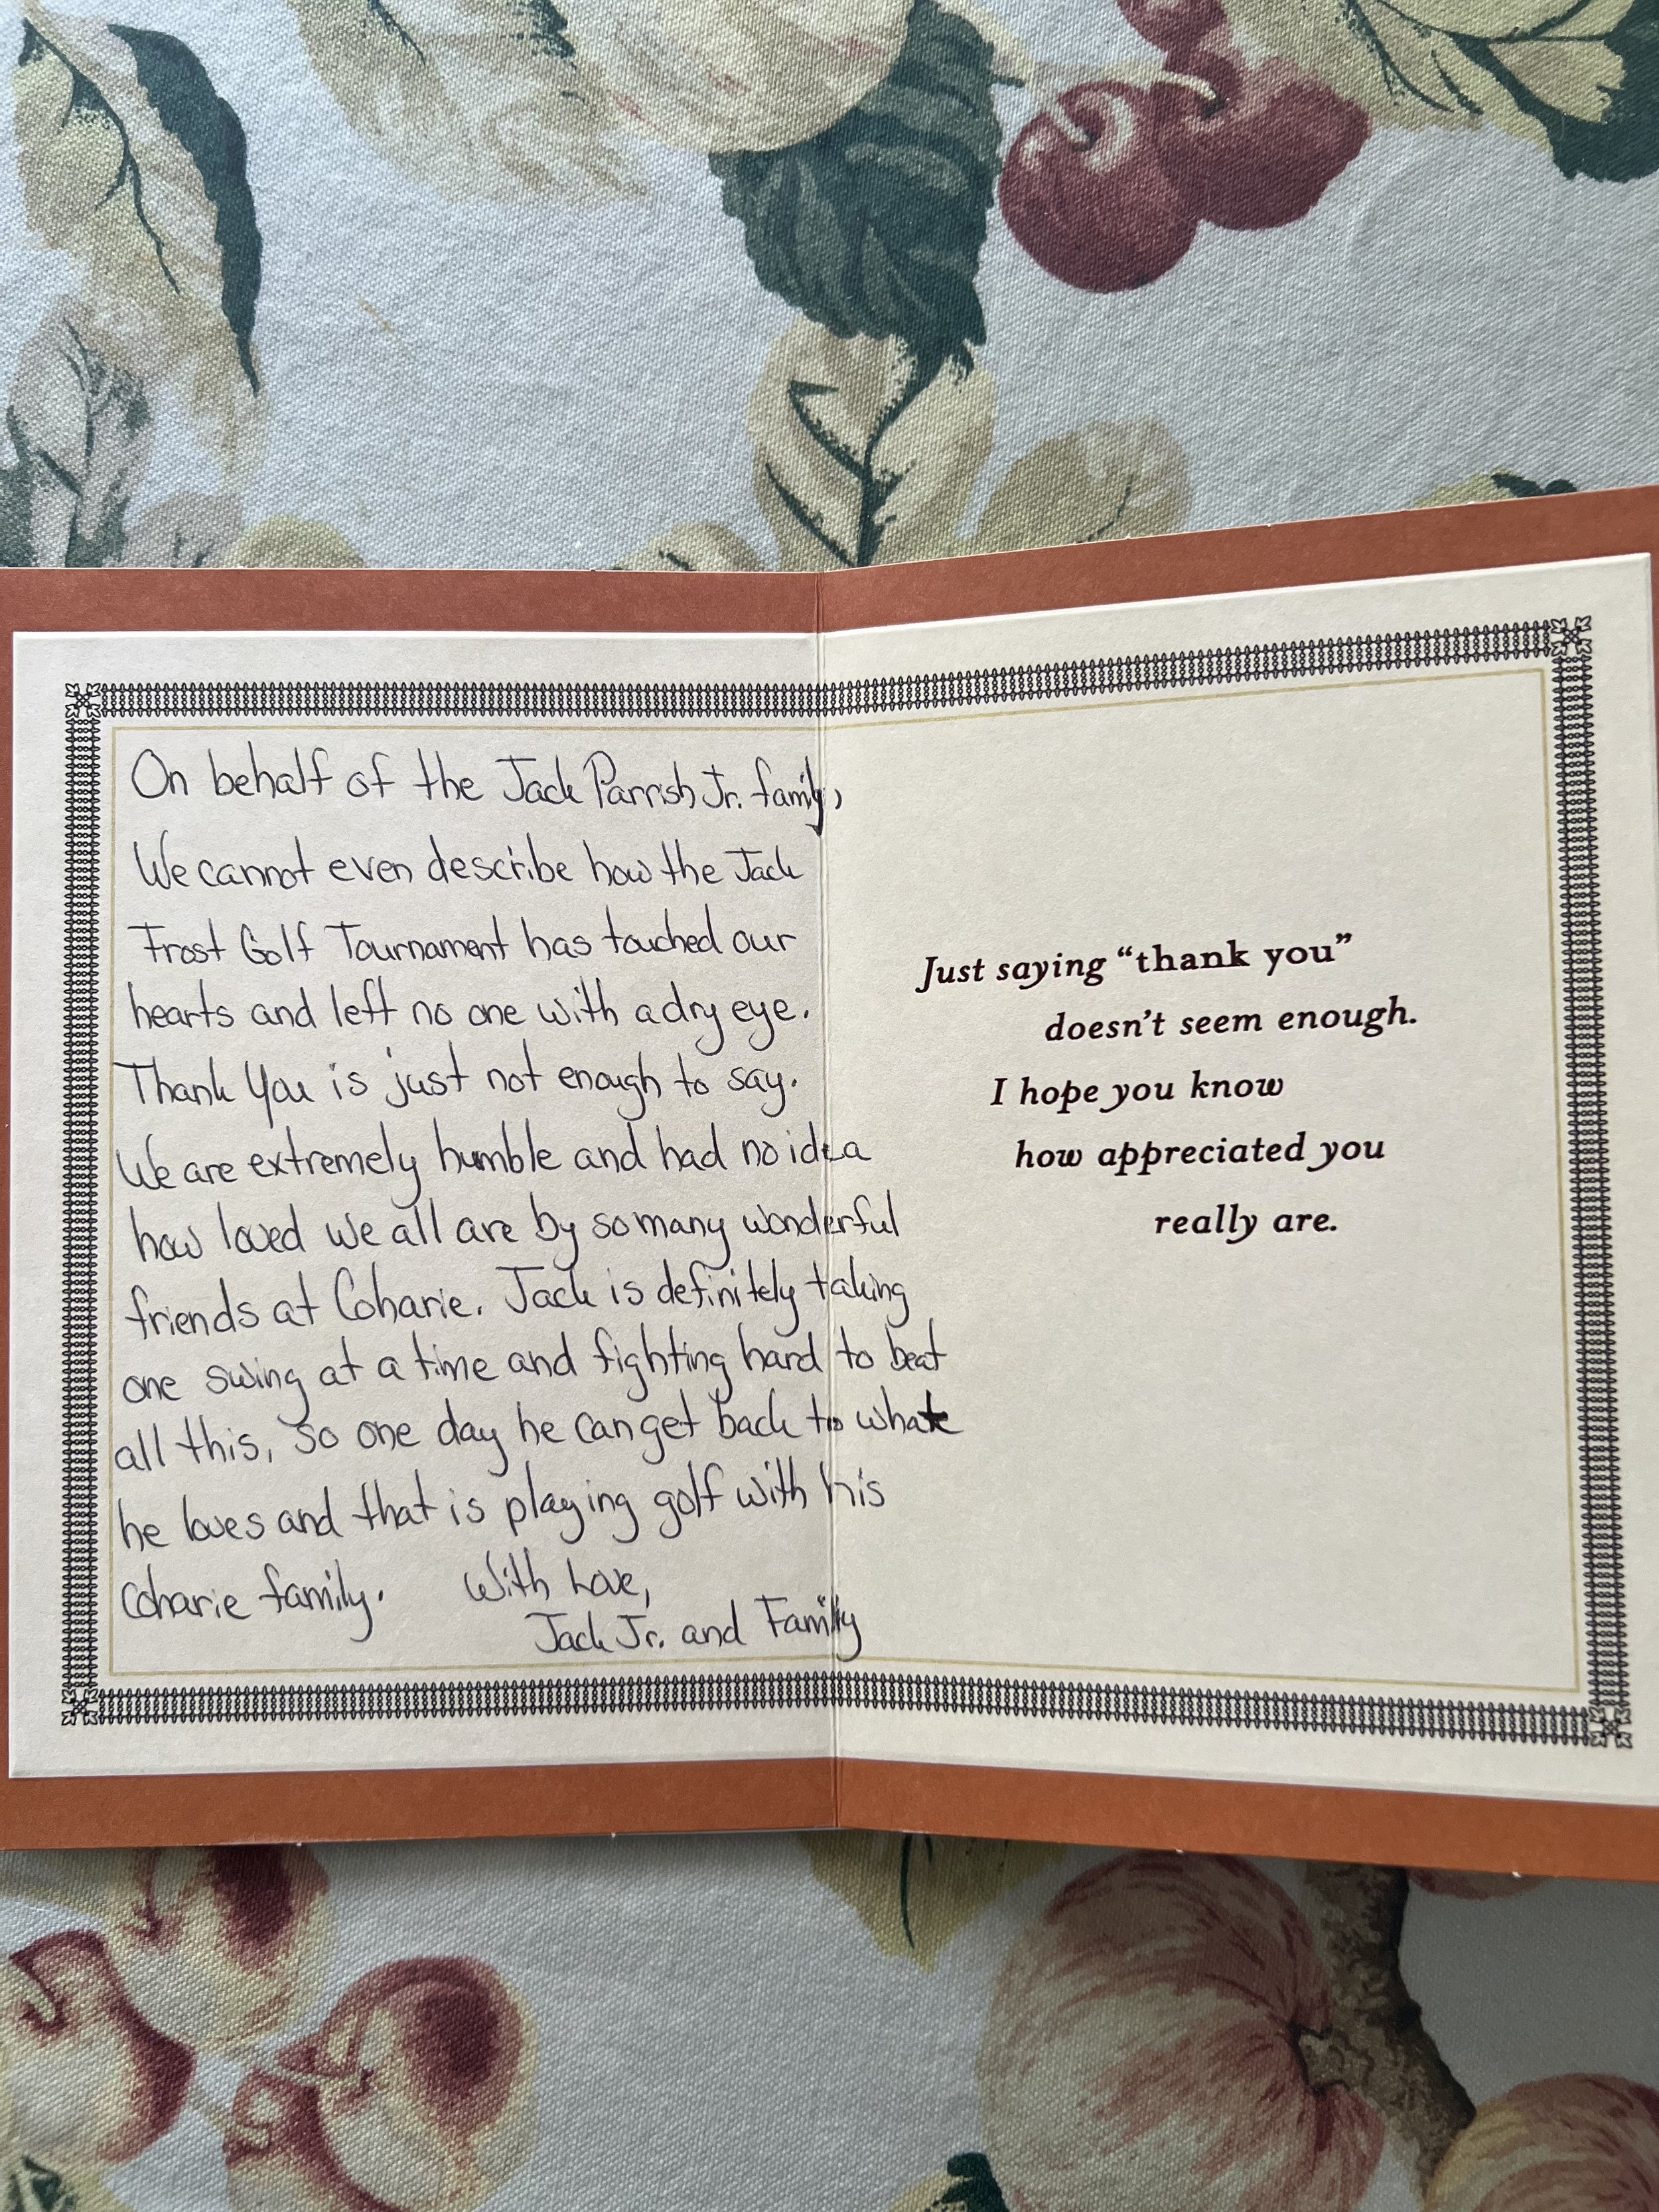 On behalf of the Jack Parrish Jr. family,
We cannot even describe how the Jack
Frost Golf Tournament has touched our
hearts and left no one with a dry eye.
Thank You is just not enough to say.
We are extremely humble and had no idea
how loved we all are by so many wonderful
friends at Coharie. Jack is definitely taking
one swing at a time and fighting hard to beat
all this, so one day he can get back to what
he loves and that is playing golf with his
Coharie family. With Love,
Jack Jr. and Family
Just saying “thank you”
doesn't seem enough.
I hope you know
how appreciated you
really are.